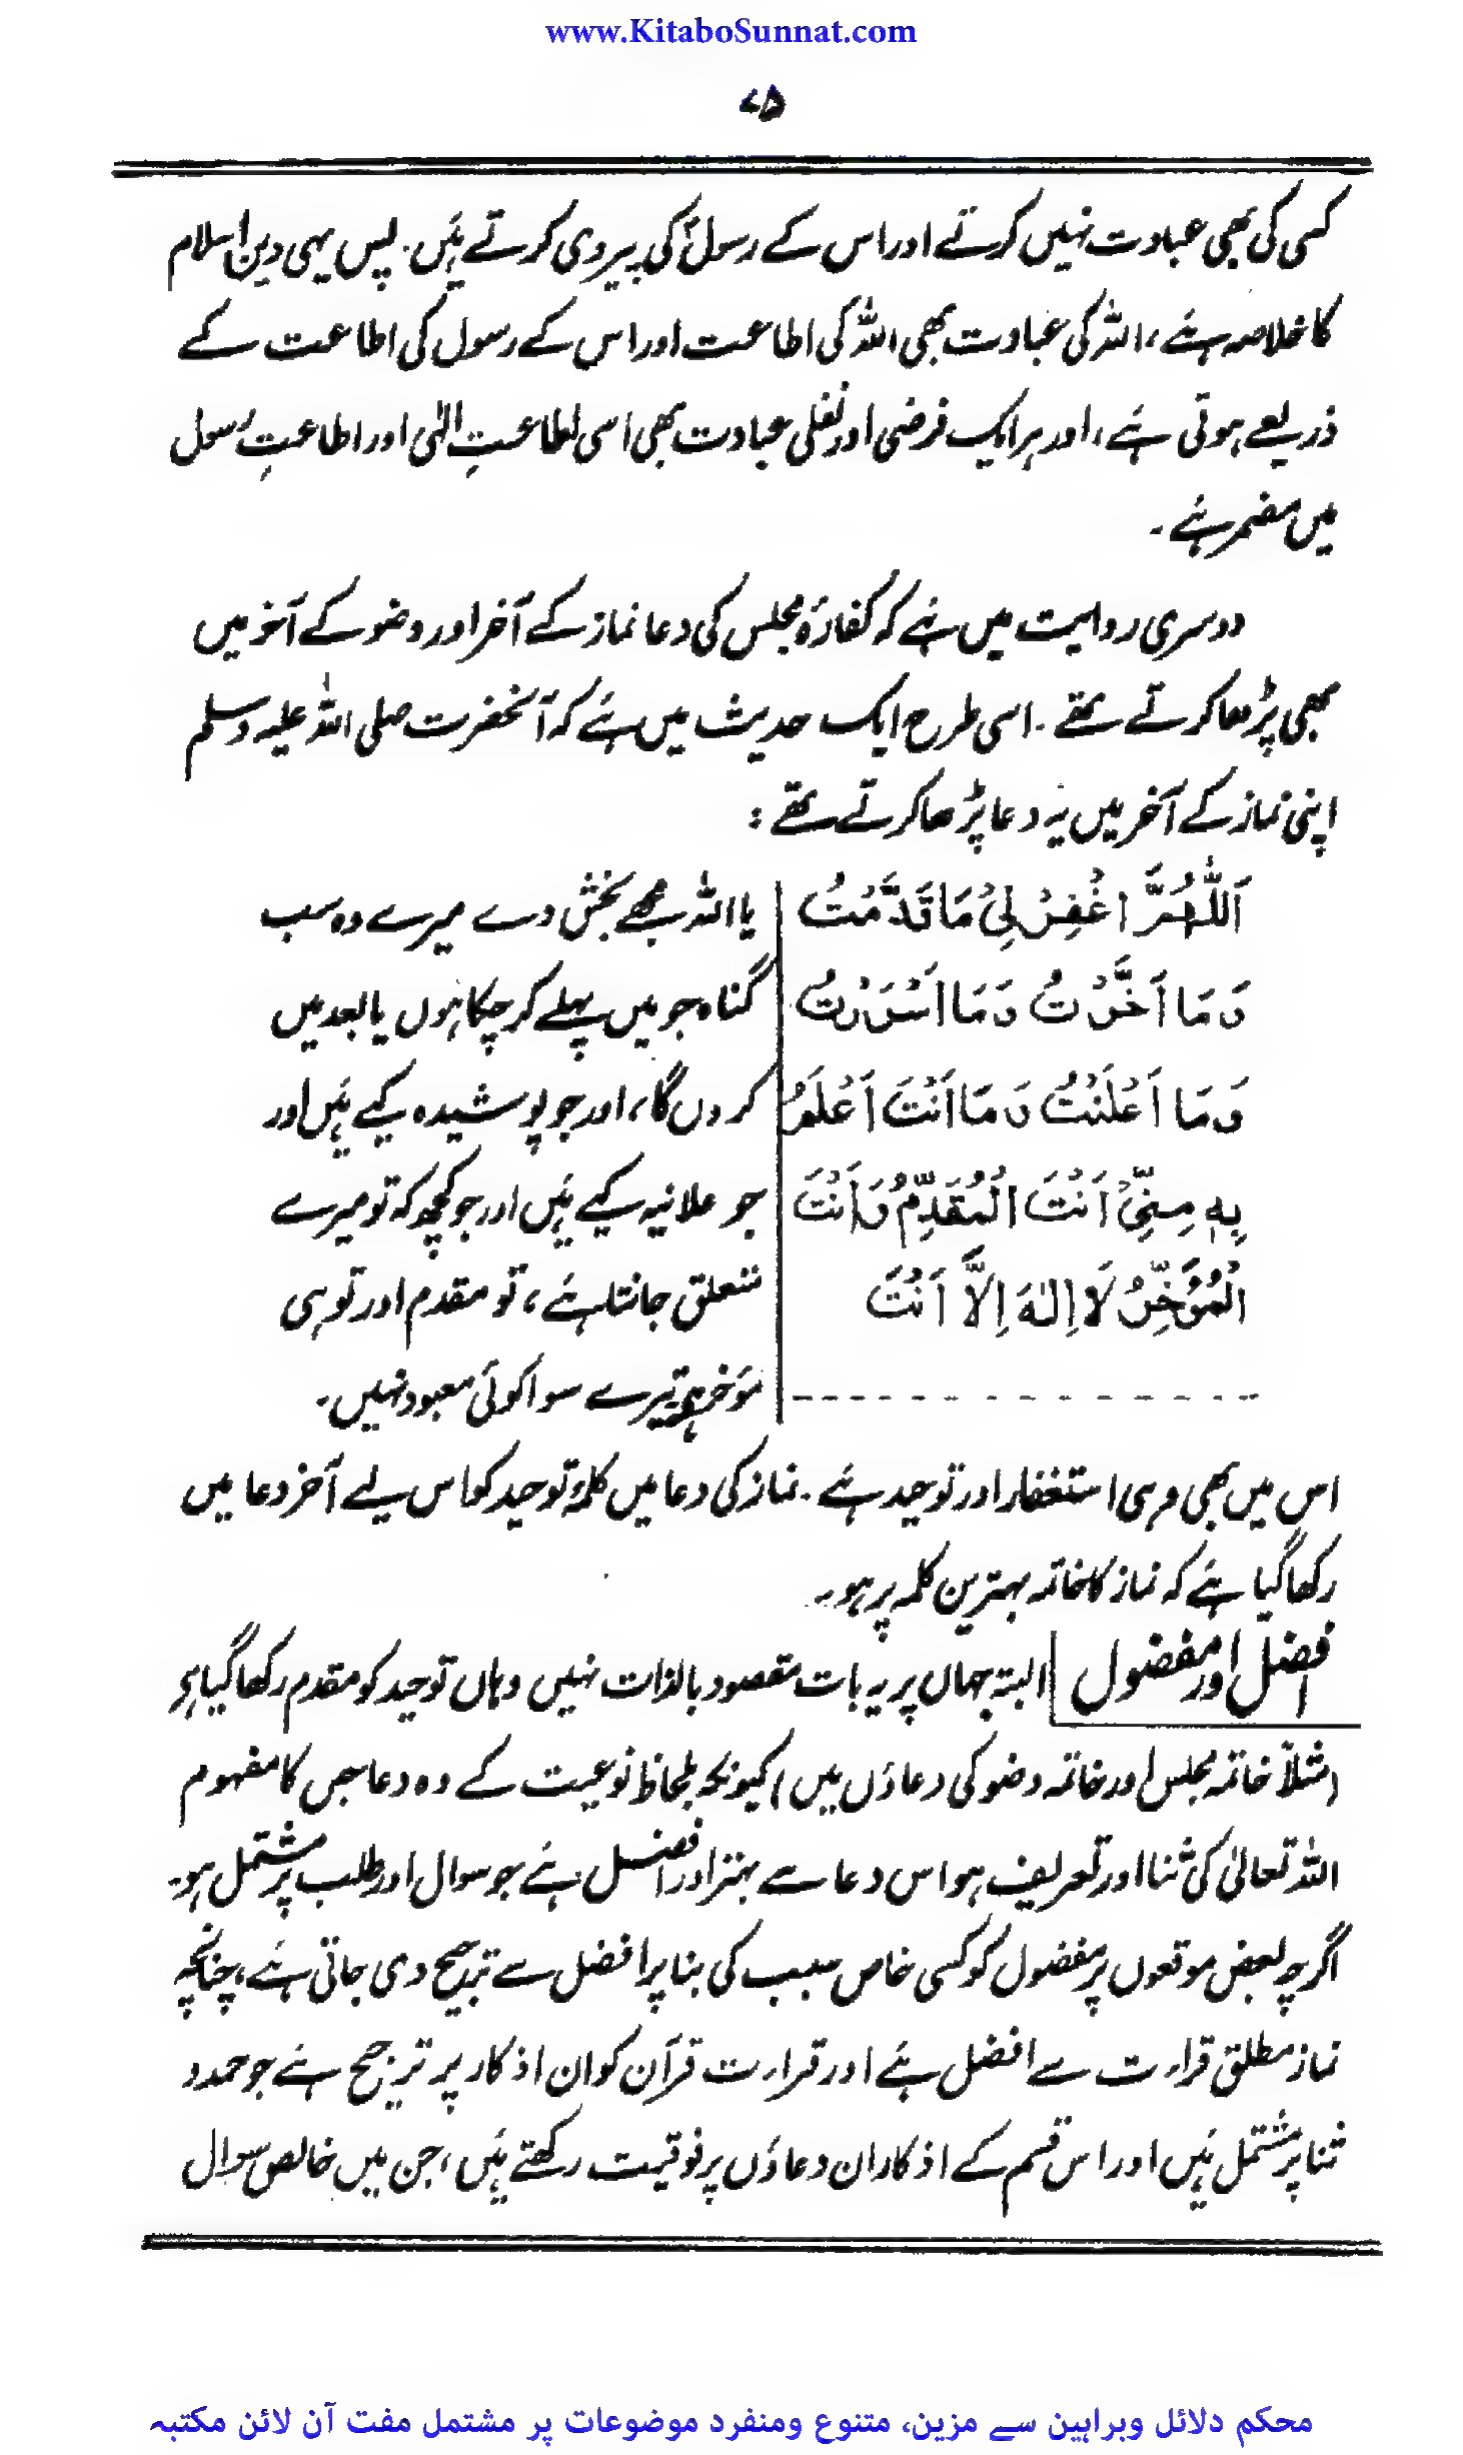 www.KitaboSunnat.com
۷۵
کسی کی بھی عبادت نہیں کرتے اور اس کے رسولؐ کی پیروی کرتے ہیں۔ پس یہی دین اسلام
کا خلاصہ ہے، اللہ کی عبادت بھی اللہ کی اطاعت اور اس کے رسول کی اطاعت کے
ذریعے ہوتی ہے، اور ہر ایک فرضی اور نفلی عبادت بھی اسی اطاعتِ الٰہی اور اطاعتِ رسول
میں مضمر ہے۔
دوسری روایت میں ہے کہ کفارۂ مجلس کی دعا نماز کے آخر اور وضو کے آخر میں
بھی پڑھا کرتے تھے۔ اسی طرح ایک حدیث میں ہے کہ آنحضرت صلی اللہ علیہ وسلم
اپنی نماز کے آخر میں یہ دعا پڑھا کرتے تھے:
اَللّٰهُمَّ اغْفِرْ لِیْ مَا قَدَّمْتُ
وَمَا اَخَّرْتُ وَمَا اَسْرَرْتُ
وَمَا اَعْلَنْتُ وَمَا اَنْتَ اَعْلَمُ
بِهٖ مِنِّیْ اَنْتَ الْمُقَدِّمُ وَاَنْتَ
الْمُؤَخِّرُ لَا اِلٰهَ اِلَّا اَنْتَ
یا اللہ مجھے بخش دے میرے وہ سب
گناہ جو میں پہلے کر چکا ہوں یا بعد میں
کروں گا، اور جو پوشیدہ کیے ہیں اور
جو علانیہ کیے ہیں اور جو کچھ کہ تو میرے
متعلق جانتا ہے، تو مقدم اور تو ہی
مؤخر ہے تیرے سوا کوئی معبود نہیں۔
اس میں بھی وہی استغفار اور توحید ہے۔ نماز کی دعا میں کلمۂ توحید کو اس لیے آخر دعا میں
رکھا گیا ہے کہ نماز کا خاتمہ بہترین کلمہ پر ہو۔
افضل اور مفضول
البتہ جہاں پر یہ بات مقصود بالذات نہیں وہاں توحید کو مقدم رکھا گیا ہے
(مثلاً خاتمہ مجلس اور خاتمہ وضو کی دعاؤں میں) کیونکہ بلحاظ نوعیت کے وہ دعا جس کا مفہوم
اللہ تعالیٰ کی ثنا اور تعریف ہو اس دعا سے بہتر اور افضل ہے جو سوال اور طلب پر مشتمل ہو۔
اگرچہ بعض موقعوں پر مفضول کو کسی خاص سبب کی بنا پر افضل سے ترجیح دی جاتی ہے، چنانچہ
نماز مطلق قراءت سے افضل ہے اور قراءت قرآن کو ان اذکار پر ترجیح ہے جو حمد و
ثنا پر مشتمل ہیں اور اس قسم کے اذکار ان دعاؤں پر فوقیت رکھتے ہیں، جن میں خالص سوال
محکم دلائل وبراہین سے مزین، متنوع ومنفرد موضوعات پر مشتمل مفت آن لائن مکتبہ